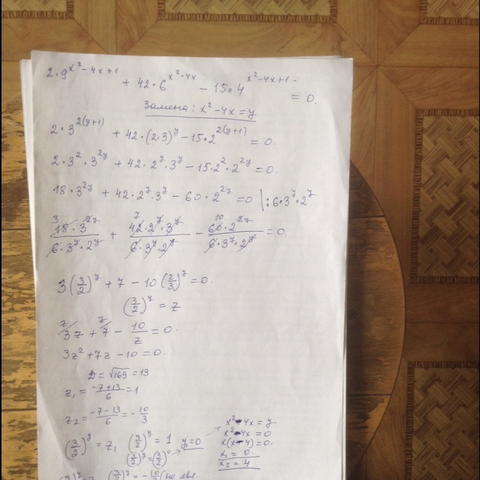 2·9^(x²-4x+1) + 42·6^(x²-4x) - 15·4^(x²-4x+1) = 0.
Замена: x²-4x=y
2·3^(2(y+1)) + 42·(2·3)^y - 15·2^(2(y+1)) = 0.
2·3²·3^(2y) + 42·2^y·3^y - 15·2²·2^(2y) = 0.
18·3^(2y) + 42·2^y·3^y - 60·2^(2y) = 0 |:6·3^y·2^y
18·3^(2y)/(6·3^y·2^y) + 42·2^y·3^y/(6·3^y·2^y) - 60·2^(2y)/(6·3^y·2^y) = 0.
3(3/2)^y + 7 - 10(2/3)^y = 0.
(3/2)^y = z
3z + 7 - 10/z = 0.
3z² + 7z - 10 = 0.
D = √169 = 13
z₁ = (-7+13)/6 = 1
z₂ = (-7-13)/6 = -10/3
(3/2)^y = z₁ (3/2)^y = 1
(3/2)^y = (3/2)^0 y=0
x²-4x=y
x²-4x=0
x(x-4)=0.
x₁=0.
x₂=4